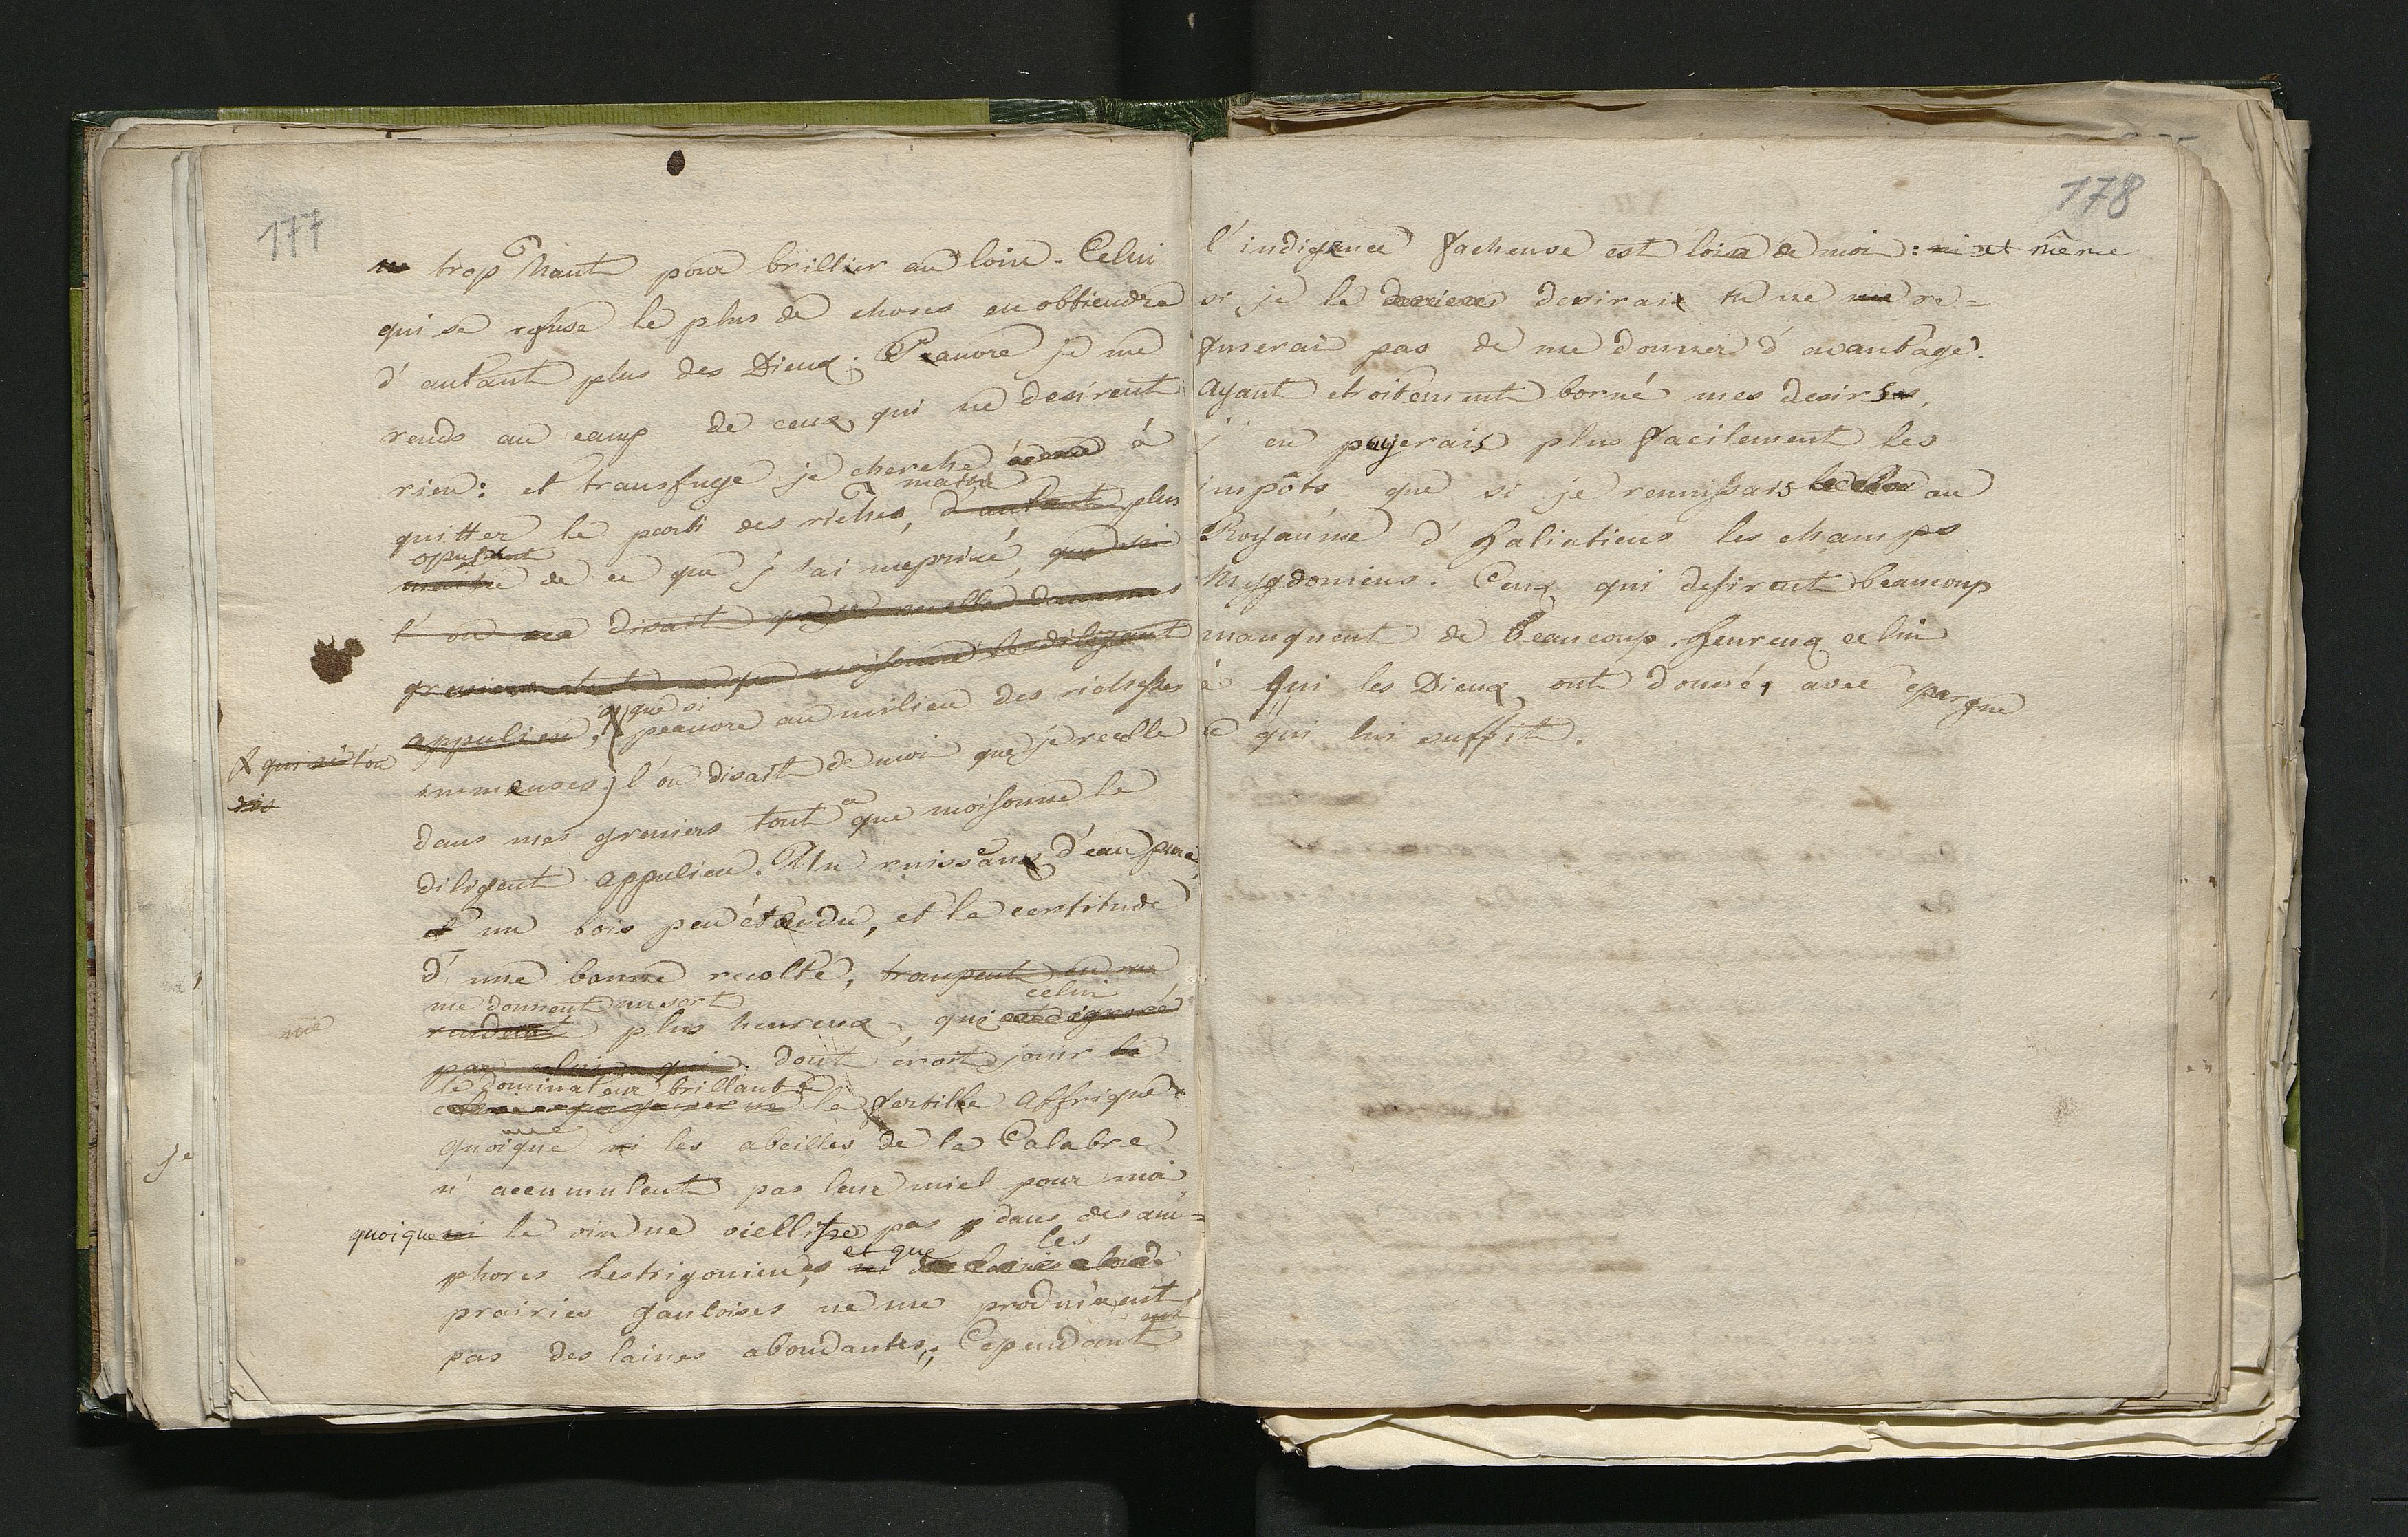 177
trop haut pour brillier au loin. Celui
qui se refuse le plus de choses en obtiendra
d'autant plus des Dieux. Peauvre je me
rends au camp de ceux qui ne desirent
rien: et transfuge je cherche à
maitre
quitter le parti des riches, d'autant plus
opulent
maitre de ce que j'ai meprisé, que si
l'on disait
greniers tout ce que moissonne le diligent
appulien, que si peauvre au milieu des richesses
& que si l'on
dis
immenses, l'on disait de moi que je recelle
dans mes greniers tout ce que moissonne le
diligent appulien. Un ruisseaux d'eau pure,
et un bois peu étendu, et la certitude
d'une bonne recolte, trompent en me
me donnent un sort celui
rendent plus heureux, que est ignoré
par celui qui dont croit jouir le
le dominateur brillant de
la fertille Affrique
quoique ni les abeilles de la Calabre
n'accumulent pas leur miel pour moi
quoique ni le vin ne viellisse pas dans des am=
et que les
phores Lestrigoniennes ni des laines
prairies gauloises ne me produisent
pas des laines abondantes, Cependant
me
je
178
l'indigence facheuse est loin de moi: ni et même
si je le desirais tu ne me re=
fuserai pas de me donner d'avantage.
Ayant etroitement borné mes desirs,
j'en payerais plus facilement les
impôts que si je reunissais au
Royaume d'haliatiens les champs
Mygdoniens. Ceux qui desirent beaucoup
manquent de beaucoup. heureux celui
à qui les Dieux ont donné, avec epargne
ce qui lui suffit.